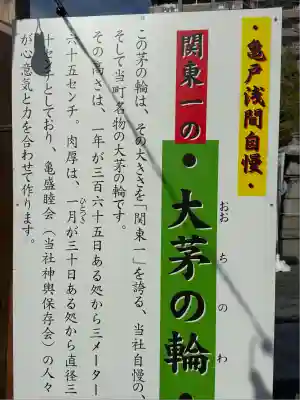 ・亀戸浅間自慢・
関東一の
・大茅の輪・
おおちのわ
この茅の輪は、その大きさを「関東一」を誇る、当社自慢の、
そして当町名物の大茅の輪です。
その高さは、一年が三百六十五日ある処から三メーター
六十五センチ。肉厚は、一月が三十日ある処から直径三
ひとつき
十センチとしており、亀盛睦会(当社神輿保存会)の人々
が心意気と力を合わせて作ります。